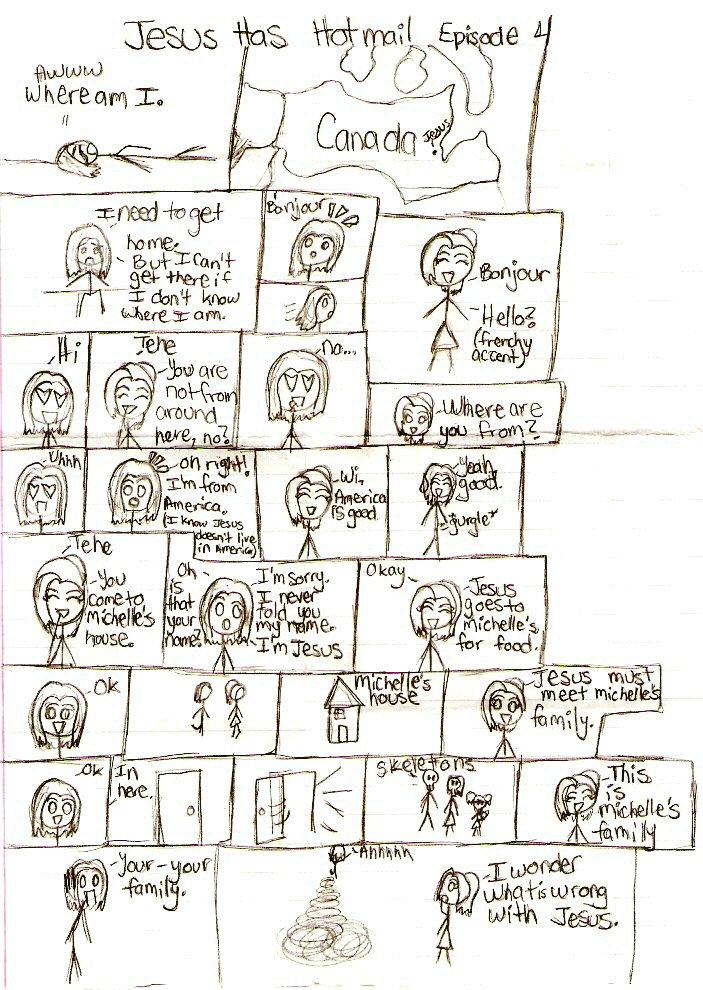 Jesus Has Hotmail Episode 4
Awww
Where am I.
Canada
Jesus
I need to get
home.
But I can't
get there if
I don't know
where I am.
Bonjour
Bonjour
Hello?
(frenchy
accent)
Hi
Tehe
You are
not from
around
here, no?
no...
Where are
you from?
Uhhh
oh right!
I'm from
America.
(I know Jesus
doesn't live
in America)
Wi,
America
is good.
Yeah,
good.
*gurgle*
Tehe
You
come to
Michelle's
house.
Oh
is
that
your
name?
I'm sorry.
I never
told you
my name.
I'm Jesus
Okay
Jesus
goes to
michelle's,
for food.
Ok
Michelle's
house
Jesus must
meet michelle's
family.
Ok
In
here.
Skeletons
This
is
michelle's
family
Your-your
family.
Ahhhhh
I wonder
what is wrong
with Jesus.